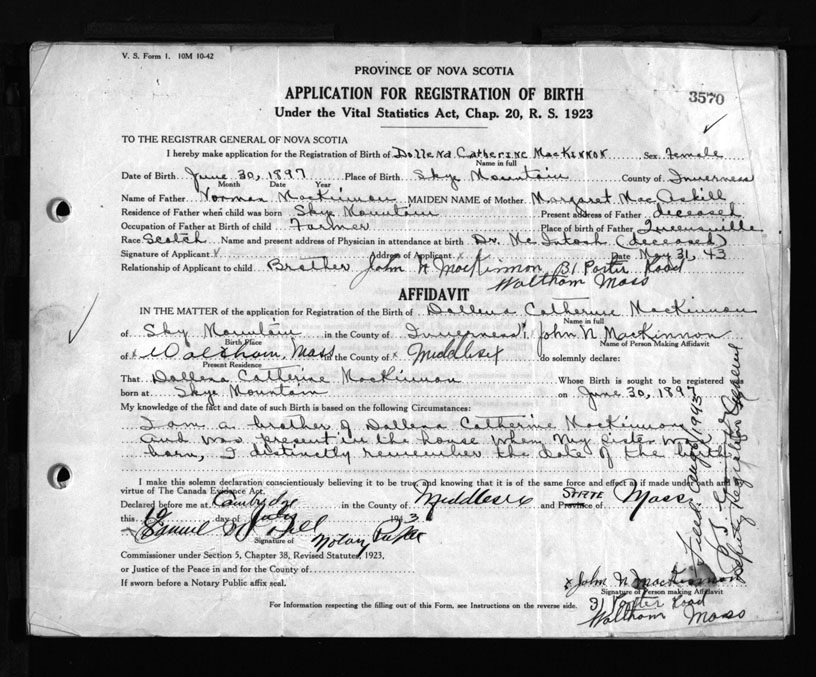 V. S. Form 1. 10M 10-42
PROVINCE OF NOVA SCOTIA
APPLICATION FOR REGISTRATION OF BIRTH
3570
Under the Vital Statistics Act, Chap. 20, R. S. 1923
TO THE REGISTRAR GENERAL OF NOVA SCOTIA
I hereby make application for the Registration of Birth of Dollena Catherine MacKinnon Sex Female
Name in full
Date of Birth June 30, 1897 Place of Birth Skye Mountain County of Inverness
Month Date Year
Name of Father Norman MacKinnon MAIDEN NAME of Mother Margaret MacAskill
Residence of Father when child was born Skye Mountain Present address of Father deceased
Occupation of Father at Birth of child Farmer Place of birth of Father Queensville
Race Scotch Name and present address of Physician in attendance at birth Dr. McIntosh (deceased)
Signature of Applicant x Address of Applicant x Date May 31, 43
Relationship of Applicant to child Brother John N MacKinnon, 31 Porter Road
Waltham Mass
AFFIDAVIT
IN THE MATTER of the application for Registration of the Birth of Dallena Catherine MacKinnon
Name in full
of Sky Mountain in the County of Inverness I, John N MacKinnon
Birth Place Name of Person Making Affidavit
of x Waltham, Mass in the County of x Middlesex do solemnly declare:
Present Residence
That Dallena Catherine MacKinnon Whose Birth is sought to be registered was
born at Skye Mountain on June 30, 1897
My knowledge of the fact and date of such Birth is based on the following Circumstances:
I am a brother of Dallena Catherine MacKinnon
and was present in the house when my sister was
born, I distinctly remember the date of the birth
I make this solemn declaration conscientiously believing it to be true and knowing that it is of the same force and effect as if made under oath and by
virtue of The Canada Evidence Act.
Declared before me at Cambridge in the County of Middlesex and Province of STATE Mass
this 10 day of July 1943
Samuel
Signature of Notary Public
Commissioner under Section 5, Chapter 38, Revised Statutes, 1923,
or Justice of the Peace in and for the County of
If sworn before a Notary Public affix seal.
x John N MacKinnon
Signature of Person making Affidavit
31 Porter Road
Waltham Mass
For Information respecting the filling out of this Form, see Instructions on the reverse side.
1943
Deputy Registrar General